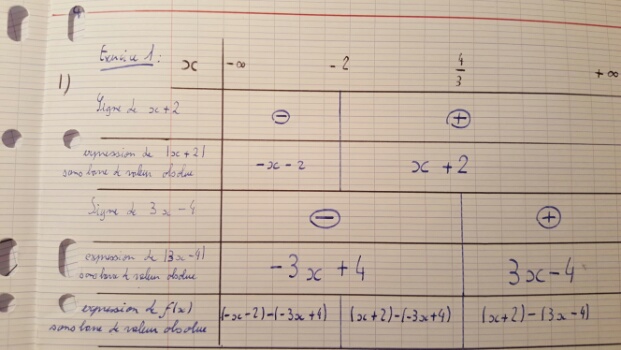 Exercice 1 :
1)
x -∞ -2 4/3 +∞
Signe de x+2 ⊖ ⊕
expression de |x+2|
sans barre de valeur absolue
-x-2 x+2
Signe de 3x-4 ⊖ ⊕
expression de |3x-4|
sans barre de valeur absolue
-3x+4 3x-4
expression de f(x)
sans barre de valeur absolue
(-x-2)-(-3x+4) (x+2)-(-3x+4) (x+2)-(3x-4)